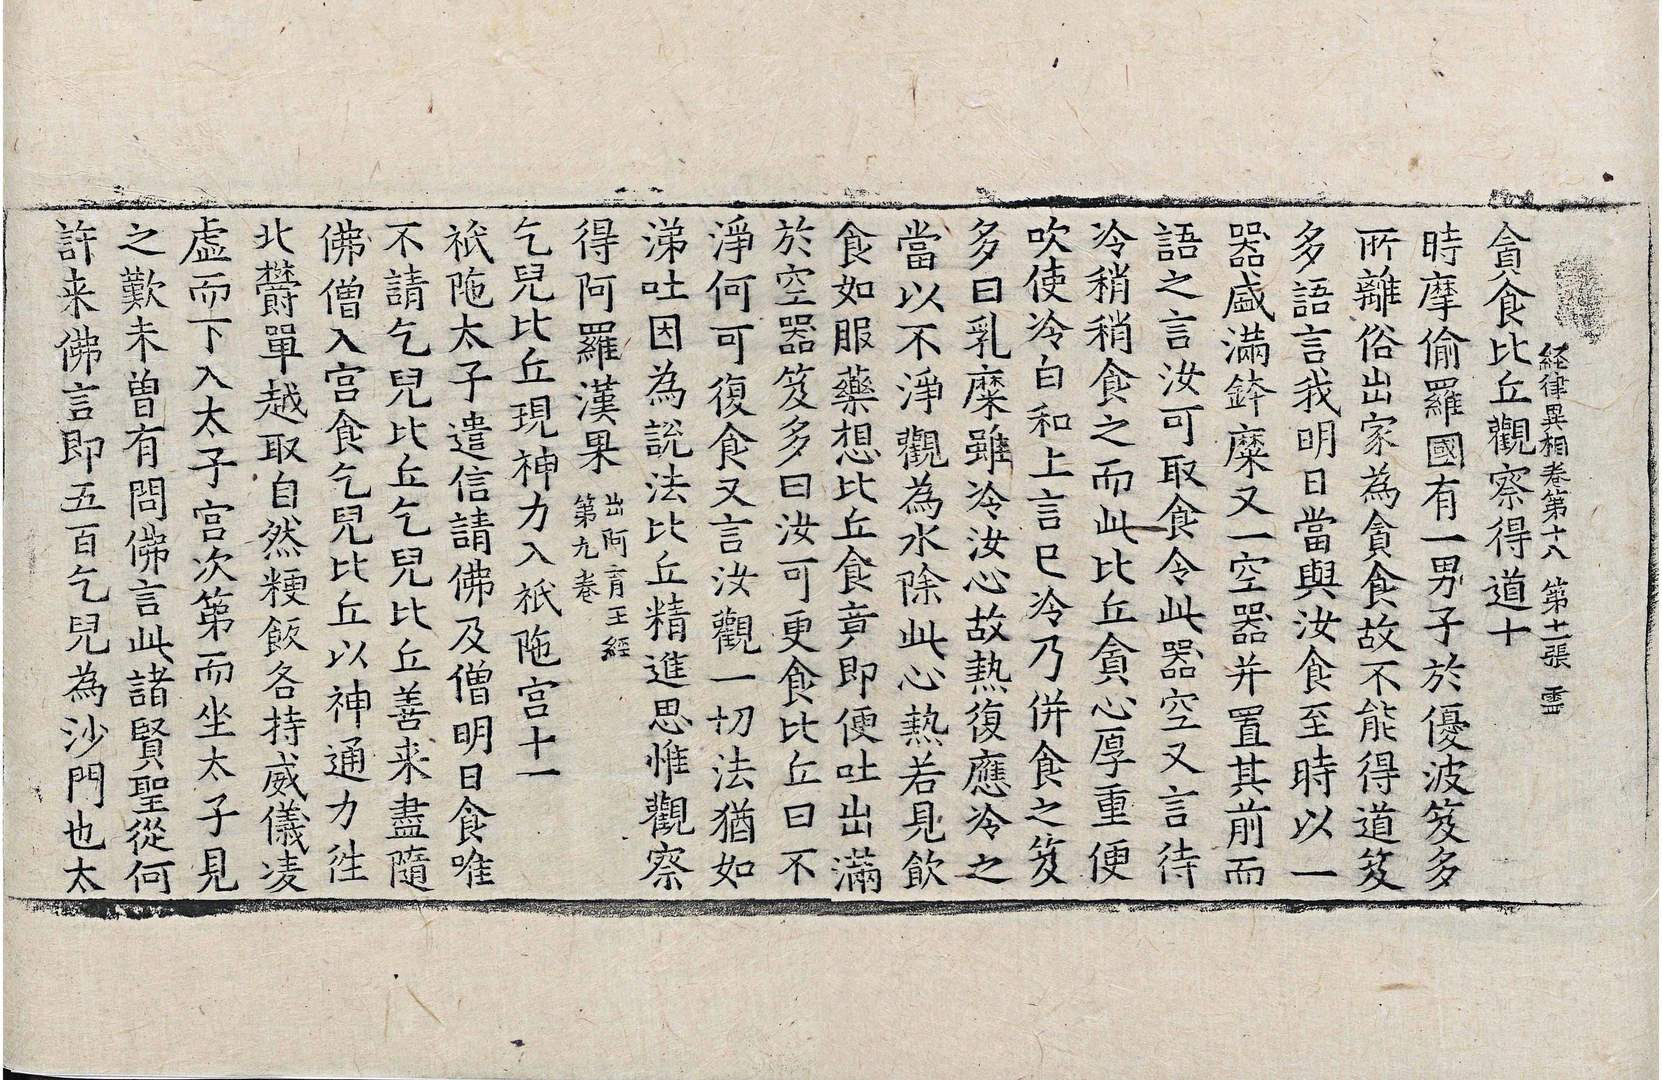 経律異相卷第十八 第十一張 霊
貪食比丘觀察得道十
時摩偷羅國有一男子於優波笈多
所離俗出家為貪食故不能得道笈
多語言我明日當與汝食至時以一
器盛滿鉢糜又一空器并置其前而
語之言汝可取食令此器空又言待
冷稍稍食之而此比丘貪心厚重便
吹使冷白和上言已冷乃併食之笈
多曰乳糜雖冷汝心故熱復應冷之
當以不淨觀為水除此心熱若見飲
食如服藥想比丘食竟即便吐出滿
於空器笈多曰汝可更食比丘曰不
淨何可復食又言汝觀一切法猶如
涕吐因為説法比丘精進思惟觀察
得阿羅漢果 出阿育王經
第九卷
乞兒比丘現神力入祇陁宮十一
祇陁太子遣信請佛及僧明日食唯
不請乞兒比丘乞兒比丘善来盡隨
佛僧入宮食乞兒比丘以神通力徃
北欝單越取自然粳飯各持威儀凌
虛而下入太子宮次第而坐太子見
之歎未曽有問佛言此諸賢聖從何
許来佛言即五百乞兒為沙門也太